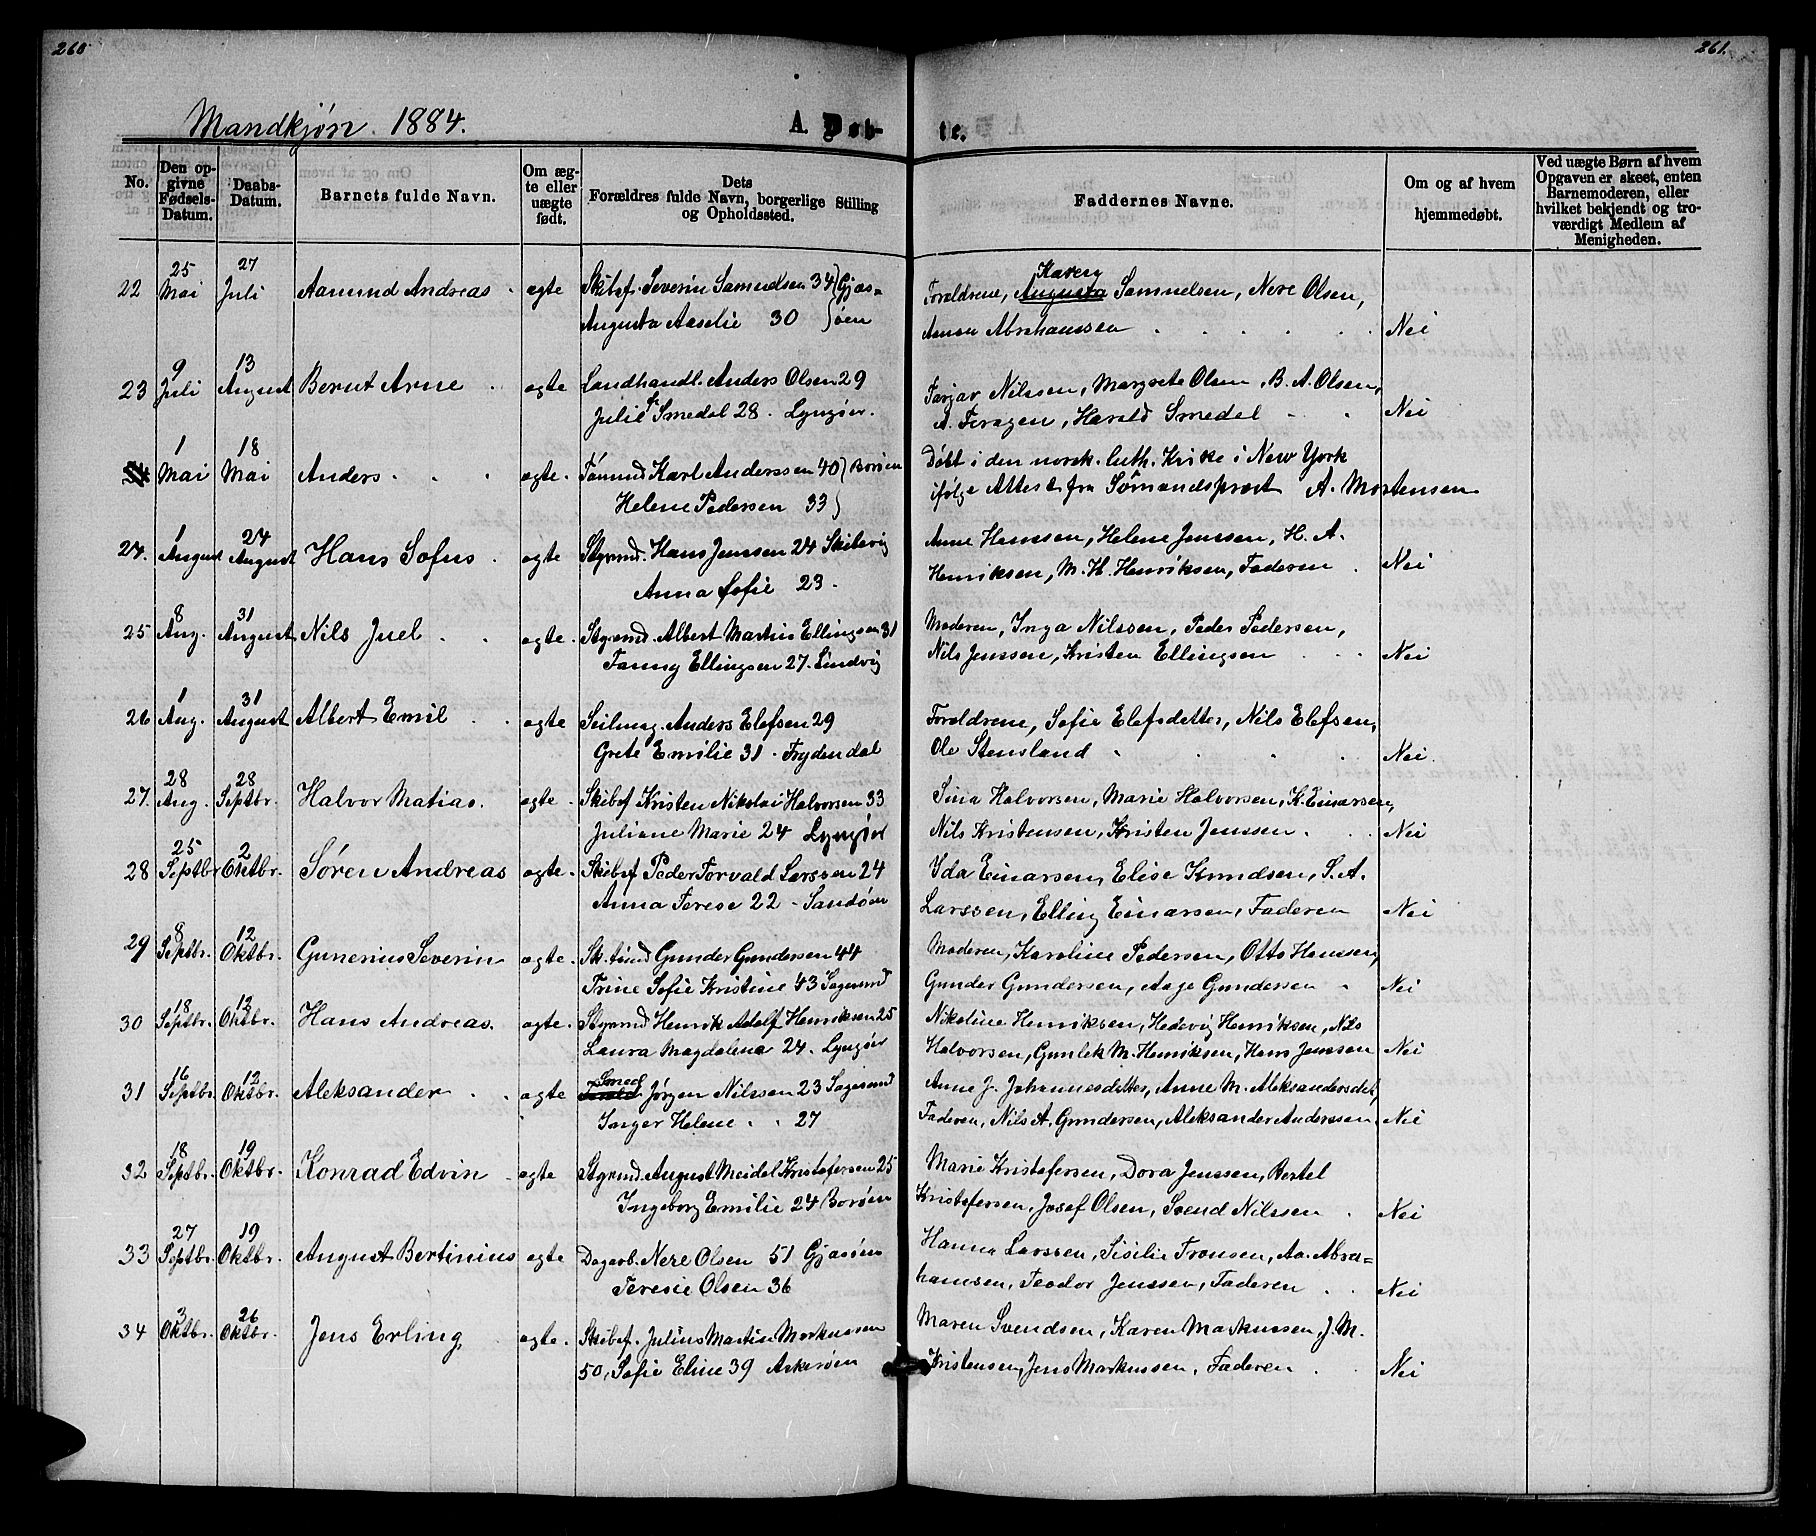 260
261.
Mandkjøn. 1884.
A. Døb-
te.
No.
Den op-
givne
Fødsels-
Datum.
Daabs-
Datum.
Barnets fulde Navn.
Om æg-
te eller
uægte
født.
Dets
Forældres fulde Navn, borgerlige Stilling
og Opholdssted.
Faddernes Navne.
Om og af hvem
hjemmedøbt.
Ved uægte Børn af hvem
Opgaven er skeet, enten
Barnemoderen, eller
hvilket bekjendt og tro-
værdigt Medlem af
Menigheden.
22 25 Mai 27 Juli Aamund Andreas ægte Skibsf. Severin Samuelsen 34 Gjæs-
Augusta Aaselie 30 øen
Forældrene, Karen Augusta Samuelsen, Nere Olsen,
Aanon Abrahamsen Nei
23 9 Juli 13 August Bernt Arne ægte Landhandl. Anders Olsen 29
Julie S Smedal 28. Lyngør.
Tarjar Nilssen, Margrete Olsen, B. A. Olsen,
A. Feragen, Harald Smedal Nei
1 Mai 18 Mai Anders ægte Tømmd Karl Anderssen 40 Borøen
Helene Pedersen 33
Døbt i den norsk. luth. Kirke i New York
ifølge Attest fra Sømandsprest A. Mortensen
24. 1 August 24 August Hans Sofus ægte Styrmd. Hans Jenssen 24 Skibsvig
Anna Sofie 23
Anne Hanssen, Helene Jenssen, H. A.
Henriksen, M. H. Henriksen, Faderen Nei
25 8 Aug. 31 August Nils Juel ægte Styrmd. Albert Martin Ellingsen 31
Fanny Ellingsen 27. Lindvig
Moderen, Inga Nilssen, Peder Pedersen,
Nils Jenssen, Kristen Ellingsen Nei
26 1 Aug. 31 August Albert Emil ægte Seilmag. Anders Elefsen 29
Grete Emilie 31. Frydendal
Forældrene, Sofie Elefsdatter, Nils Elefsen,
Ole Stensland Nei
27. 28 Aug. 28 Septbr. Halvor Matias ægte Skibsf Kristen Nikolai Halvorsen 33
Juliane Marie 24 Lyngør
Sina Halvorsen, Marie Halvorsen, K. Einarsen,
Nils Kristensen, Kristen Jenssen Nei
28 25 Septbr 2 Oktbr. Søren Andreas ægte Skibsf Peder Torvald Larssen 24
Anna Terese 22 - Sandøen
Ida Einarsen, Elise Knudsen, S. A.
Larssen, Elling Einarsen, Faderen Nei
29 8 Septbr. 12 Oktbr. Gunerius Severin ægte Sk. tømd Gunder Gundersen 44
Trine Sofie Kristine 43 Sagesund
Moderen, Karoline Pedersen, Otto Hanssen,
Gunder Gundersen, Aage Gundersen Nei
30 18 Septbr. 12 Oktbr. Hans Andreas. ægte. Styrmd Henrik Adolf Henriksen 25
Laura Magdalena 24. Lyngør
Nikoline Henriksen, Hedevig Henriksen, Nils
Halvorsen, Gunlek M. Henriksen, Hans Jenssen Nei
31 16 Septbr. 12 Oktbr. Aleksander ægte Smed Jørgen Nilssen 23 Sagesund
Inger Helene 27
Anne J. Johannesdatter, Anne M. Aleksandersdat,
Faderen, Nils A. Gundersen, Aleksander Anderssen Nei
32 18 Septbr. 19 Oktbr. Konrad Edvin ægte Styrmd. August Meidel Kristofersen 25
Ingeborg Emilie 24 Borøen
Marie Kristofersen, Dora Jenssen, Bertel
Kristofersen, Josef Olsen, Svend Nilssen Nei
33 27 Septbr. 19 Oktbr. August Bertinius ægte Dagarb. Nere Olsen 51 Gjæsøen
Teresie Olsen 36
Hanna Larssen, Sisilie Tronsen, Aa. Abra-
hamsen, Teodor Jenssen, Faderen Nei
34 3 Oktbr. 26 Oktbr. Jens Erling ægte. Skibsf. Julius Martin Markussen
50, Sofie Eline 39 Askerøen
Maren Svendsen, Karen Markussen, J. M.
Kristensen, Jens Markussen, Faderen Nei